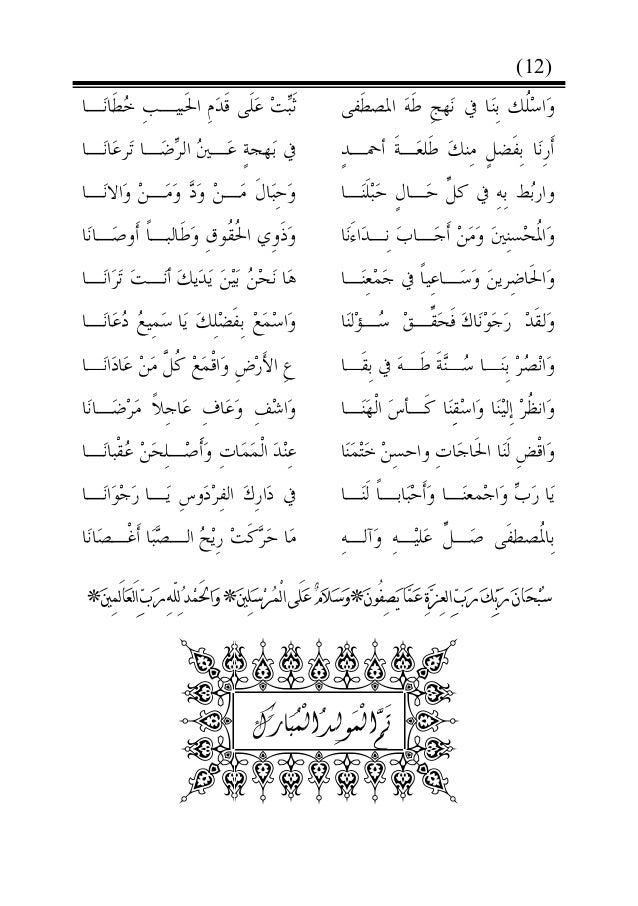 (12)
وَاسْلُك بِنَا في نَهجِ طَهَ المصطَفى ثَبِّتْ عَلَى قَدَمِ الحَبيبِ خُطَانَا
أَرِنَا بِفَضلٍ مِنكَ طَلعَةَ أحمدٍ في بَهجةٍ عَينُ الرِّضَا تَرعَانَا
واربُط بِهِ في كلِّ حَالٍ حَبْلَنَا وَحِبَالَ مَنْ وَدَّ وَمَنْ وَالانَا
وَالمُحْسنِينَ وَمَنْ أَجَابَ نِدَاءَنَا وَذَوِي الحُقُوقِ وَطَالباً أَوصَانَا
وَالحَاضِرينَ وَسَاعِياً في جَمْعِنَا هَا نَحْنُ بَيْنَ يَدَيكَ أنتَ تَرَانَا
وَلَقَدْ رَجَوْنَاكَ فَحَقِّقْ سُؤْلَنَا وَاسْمَعْ بِفَضْلِكَ يَا سَمِيعُ دُعَانَا
وَانْصُرْ بِنَا سُنَّةَ طَهَ في بِقَا عِ الأَرْضِ وَاقْمَعْ كُلَّ مَنْ عَادَانَا
وَانظُرْ إِلَيْنَا وَاسْقِنَا كَأسَ الْهَنَا وَاشْفِ وَعَافِ عَاجِلاً مَرْضَانَا
وَاقْضِ لَنَا الحَاجَاتِ واحسِنْ خَتْمَنَا عِنْدَ الْمَمَاتِ وَأَصْلِحَنْ عُقْبانَا
يَا رَبِّ وَاجْمعنَا وَأَحْبَاباً لَنَا في دَارِكَ الفِرْدَوسِ يَا رَجْوَانَا
بِالمُصطفَى صَلِّ عَلَيْهِ وَآلهِ مَا حَرَّكَتْ رِيْحُ الصَّبَا أَغْصَانَا
سُبْحَانَ رَبِّكَ رَبِّ العِزَّةِ عَمَّا يَصِفُونَ * وَسَلَامٌ عَلَى الْمُرْسَلِينَ * وَالحَمْدُ لِلَّهِ رَبِّ العَالَمِينَ *
تَمَّ الْمَولِدُ الْمُبَارَكُ